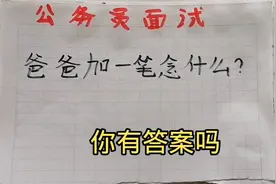 公务员面试
爸爸加一笔念什么?
你有答案吗